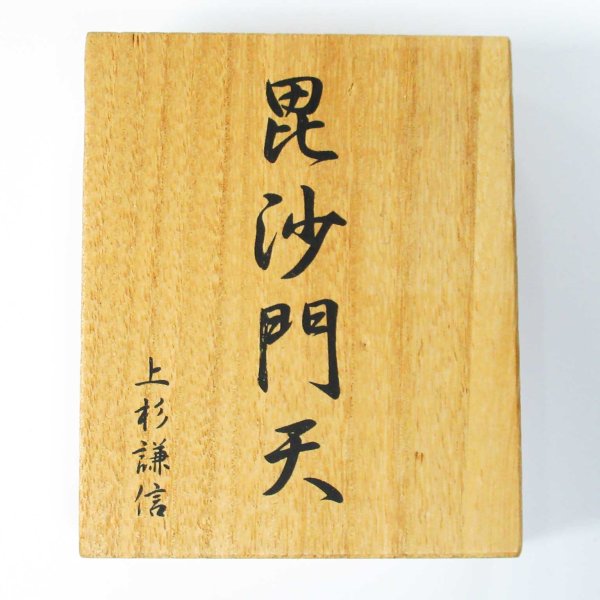 毘沙門天
上杉謙信